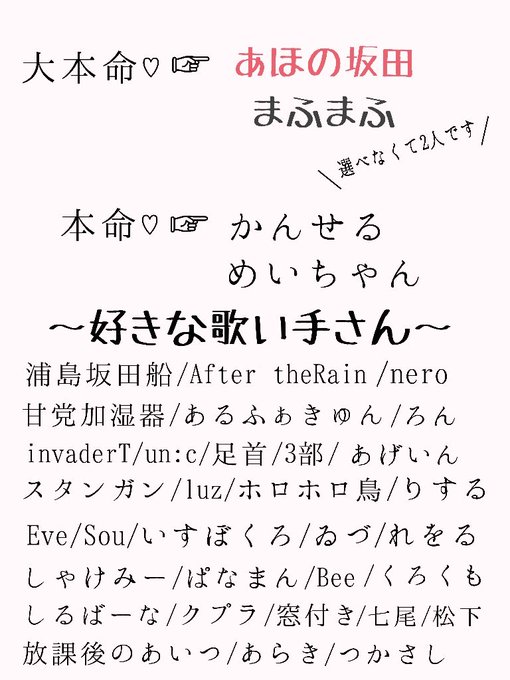 大本命♡☞ あほの坂田
まふまふ
\選べなくて2人です/
本命♡☞ かんせる
めいちゃん
～好きな歌い手さん～
浦島坂田船/After theRain/nero
甘党加湿器/あるふぁきゅん/ろん
invaderT/un:c/足首/3部/あげいん
スタンガン/luz/ホロホロ鳥/りする
Eve/Sou/いすぼくろ/ゐづ/れをる
しゃけみー/ぱなまん/Bee/くろくも
しるばーな/クプラ/窓付き/七尾/松下
放課後のあいつ/あらき/つかさし